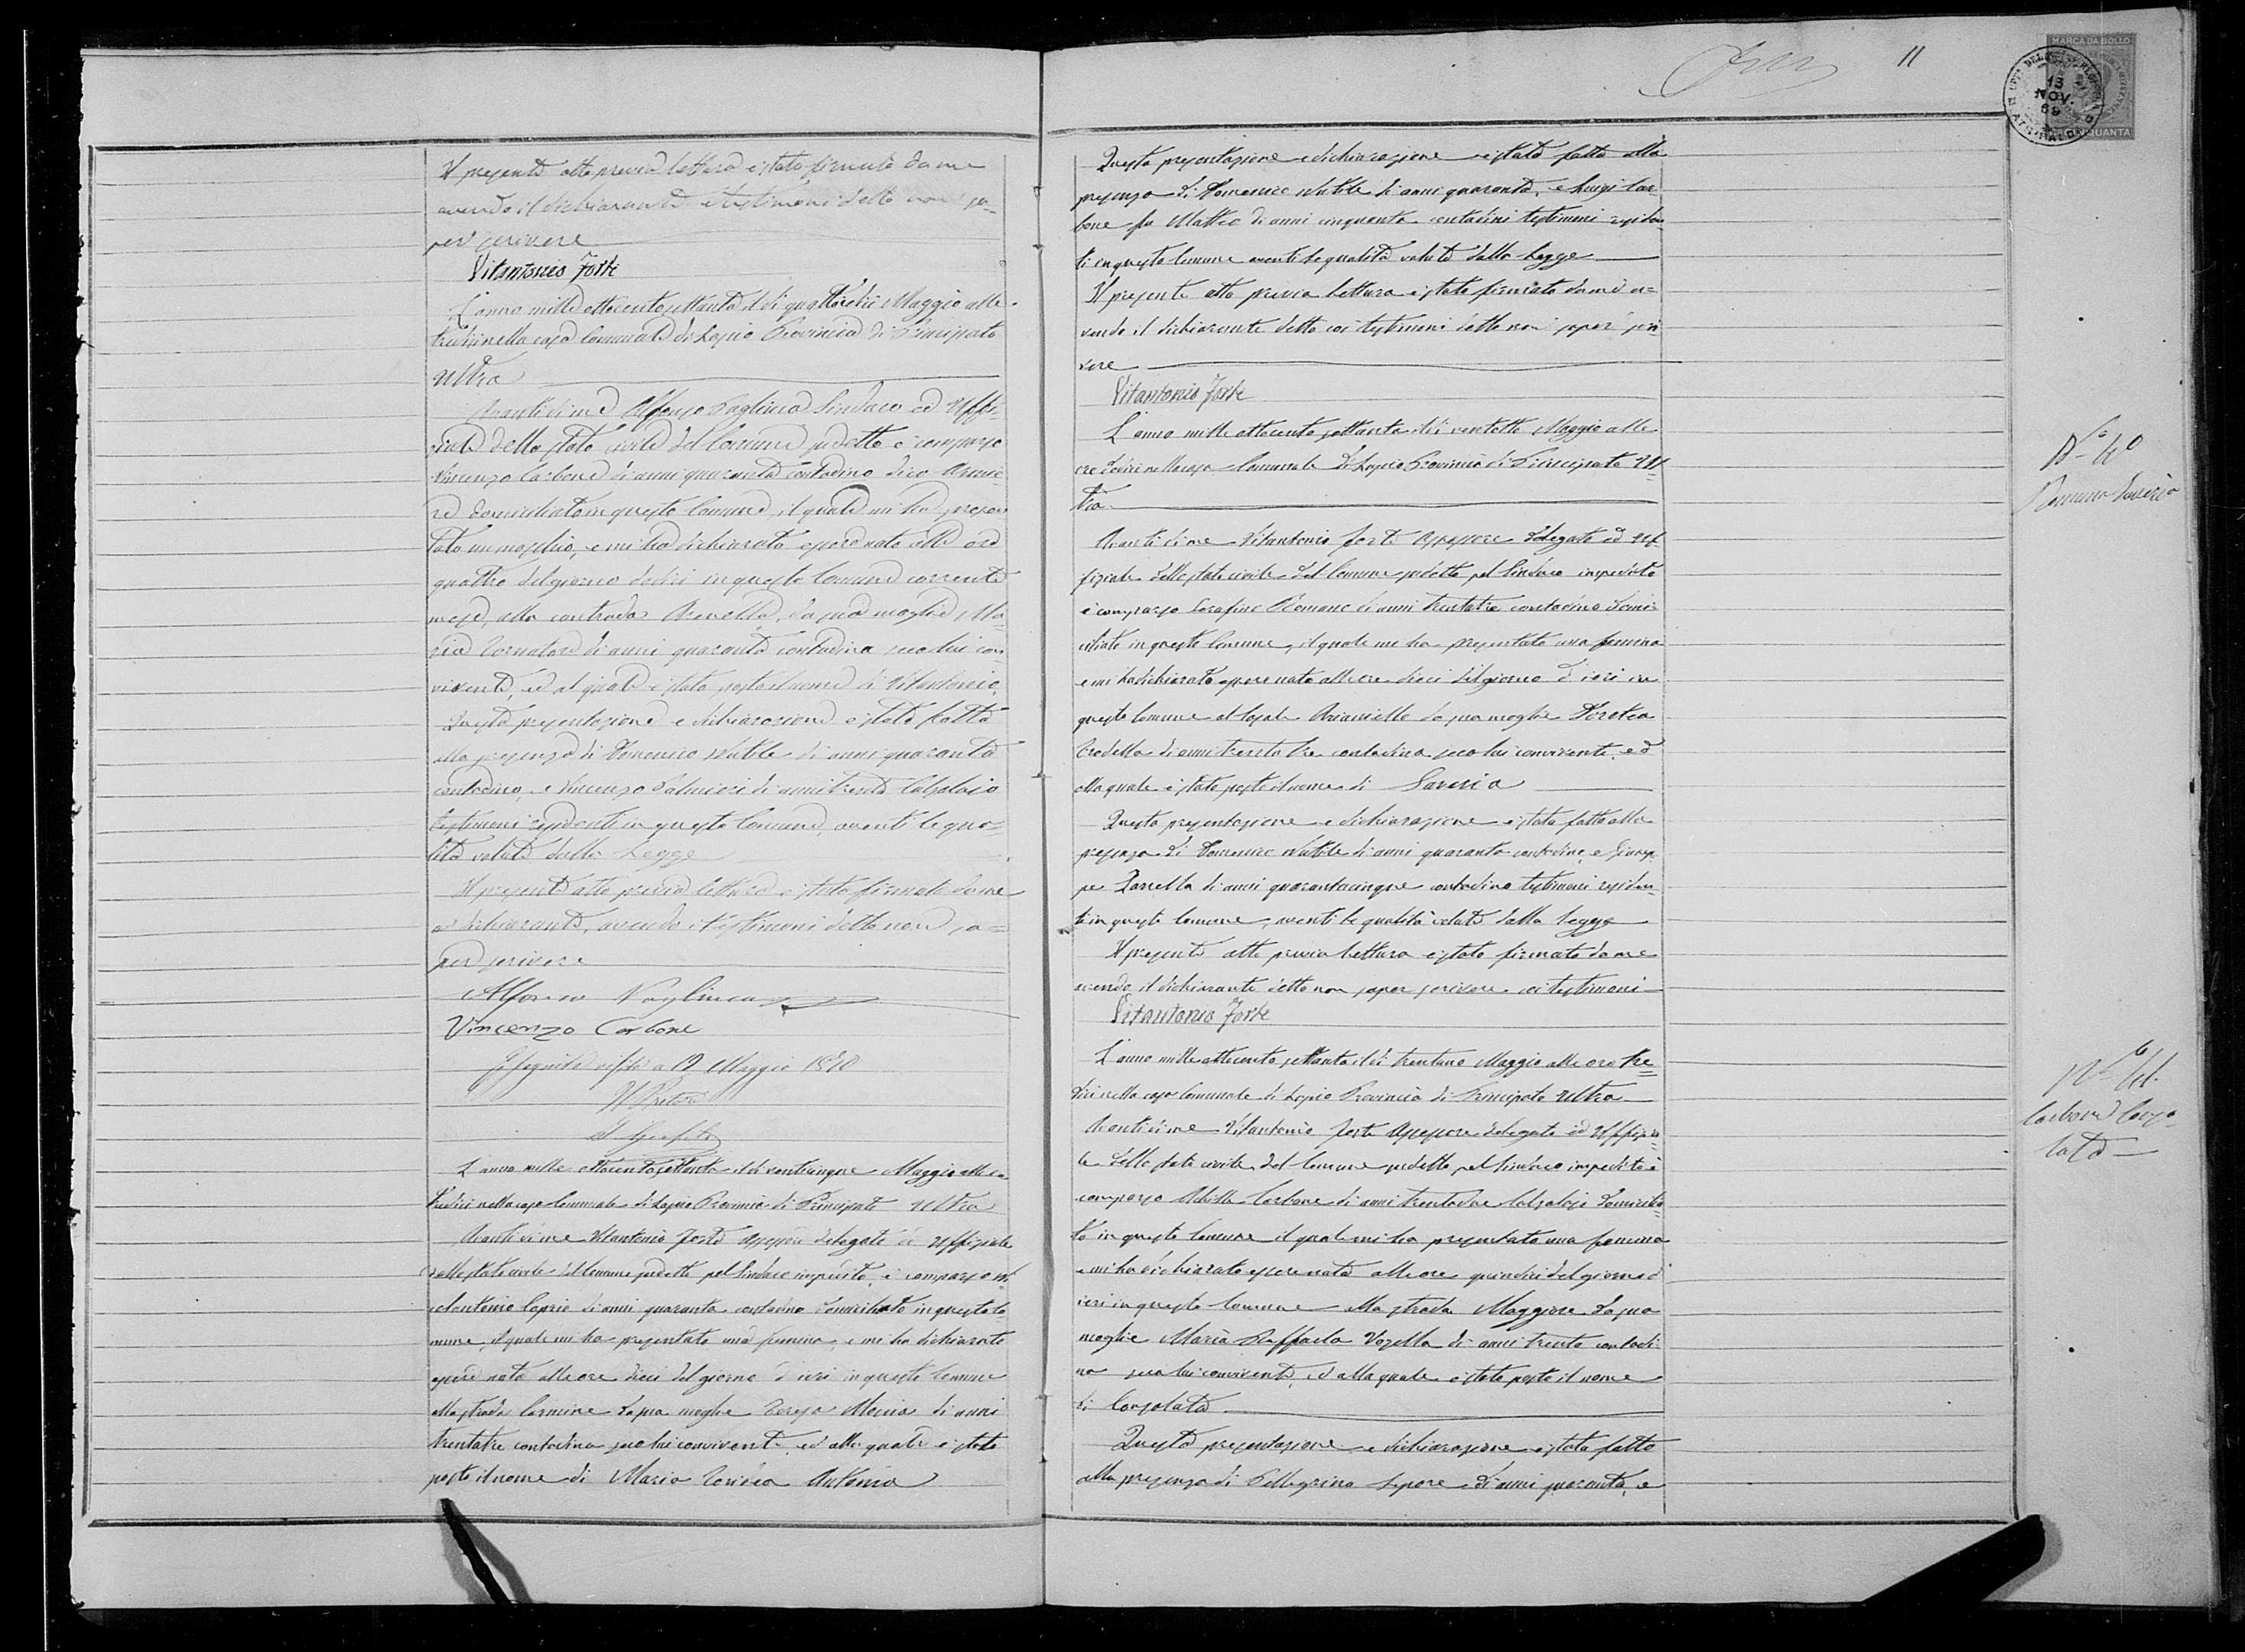 Il presente atto previa lettura è stato firmato da me
avendo il dichiarante e testimoni detto non sa-
per scrivere
Vitantonio Forte
L'anno mille ottocento settanta il dì quattordici Maggio alle
tredici nella casa Comunale di Lapio Provincia di Principato
Ultra
Avanti di me Alfonso Vagliuca Sindaco ed Uffi-
ziale dello stato civile del Comune sudetto è comparso
Vincenzo Carbone di anni quaranta contadino
domiciliato in questo Comune, il quale mi ha presen-
tato un maschio, e mi ha dichiarato essere nato alle ore
quattro del giorno dodici in questo Comune corrente
mese, alla contrada Arenella, da sua moglie Ma-
ria Tornatore di anni quaranta contadina seco lui con-
vivente, ed al quale è stato posto il nome di Vitantonio
Questa presentazione e dichiarazione è stata fatta
alla presenza di Domenico di anni quaranta
contadino, e Vincenzo Palmieri di anni trenta Calzolaio
testimoni residenti in questo Comune, aventi le qua-
lità volute dalla Legge
Il presente atto previa lettura è stato firmato da me
e dichiarante, avendo i testimoni detto non sa-
per scrivere
Alfonso Vagliuca
Vincenzo Carbone
Eseguita visita a 19 Maggio 1870
Il Pretore
L'anno mille ottocento settanta il dì venticinque Maggio alle ore
tredici nella casa Comunale di Lapio Provincia di Principato Ultra
Avanti di me Vitantonio Forte Assessore delegato ed Uffiziale
dello stato civile del Comune sudetto pel Sindaco impedito, è comparso
Antonio Caprio di anni quaranta contadino domiciliato in questo Co-
mune, il quale mi ha presentato una femina, e mi ha dichiarato
essere nata alle ore dieci del giorno d'ieri in questo Comune
alla strada Carmine da sua moglie Teresa Moccia di anni
trentatre contadina seco lui convivente, ed alla quale è stato
posto il nome di Maria Antonia
11
MARCA DA BOLLO
13
NOV.
69
CINQUANTA
Questa presentazione e dichiarazione è stata fatta alla
presenza di Domenico di anni quaranta, e Luigi Car-
bone fu Matteo di anni cinquanta contadini testimoni residen-
ti in questo Comune aventi le qualità volute dalla Legge
Il presente atto previa lettura è stato firmato da me a-
vendo il dichiarante detto coi testimoni detto non saper scri-
vere
Vitantonio Forte
L'anno mille ottocento settanta il dì ventotto Maggio alle
ore dodici nella casa Comunale di Lapio Provincia di Principato Ul-
tra
Avanti di me Vitantonio Forte Assessore delegato ed Uf-
fiziale dello stato civile del Comune sudetto pel Sindaco impedito
è comparso Serafino Romano di anni trentatre contadino domi-
ciliato in questo Comune, il quale mi ha presentato una femina
e mi ha dichiarato essere nata alle ore dieci del giorno d'ieri in
questo Comune al locale Arianiello da sua moglie Dorotea
di anni trentatre contadina seco lui convivente, ed
alla quale è stato posto il nome di Saveria
Questa presentazione e dichiarazione è stata fatta alla
presenza di Domenico di anni quaranta contadino, e Giusep-
pe Zarrella di anni quarantacinque contadino testimoni residen-
ti in questo Comune, aventi le qualità volute dalla Legge
Il presente atto previa lettura è stato firmato da me
avendo il dichiarante detto non saper scrivere coi testimoni
Vitantonio Forte
L'anno mille ottocento settanta il dì trentuno Maggio alle ore tre-
dici nella casa Comunale di Lapio Provincia di Principato Ultra
Avanti di me Vitantonio Forte Assessore delegato ed Uffizia-
le dello stato civile del Comune sudetto pel Sindaco impedito è
comparso Achille Carbone di anni trentadue Calzolajo domicilia-
to in questo Comune il quale mi ha presentato una femina
e mi ha dichiarato essere nata alle ore quindici del giorno d'
ieri in questo Comune alla strada Maggiore da sua
moglie Maria Raffaela Vozella di anni trenta contadi-
na seco lui convivente, ed alla quale è stato posto il nome
di Consolata
Questa presentazione e dichiarazione è stata fatta
alla presenza di Pellegrino Lepore di anni quaranta, e
N.o 40
Romano Saveria
N.o 41.
Carbone Conso-
lata